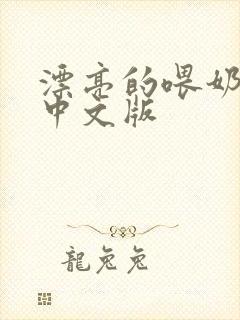 漂亮的喂奶
中文版
龍兔兔